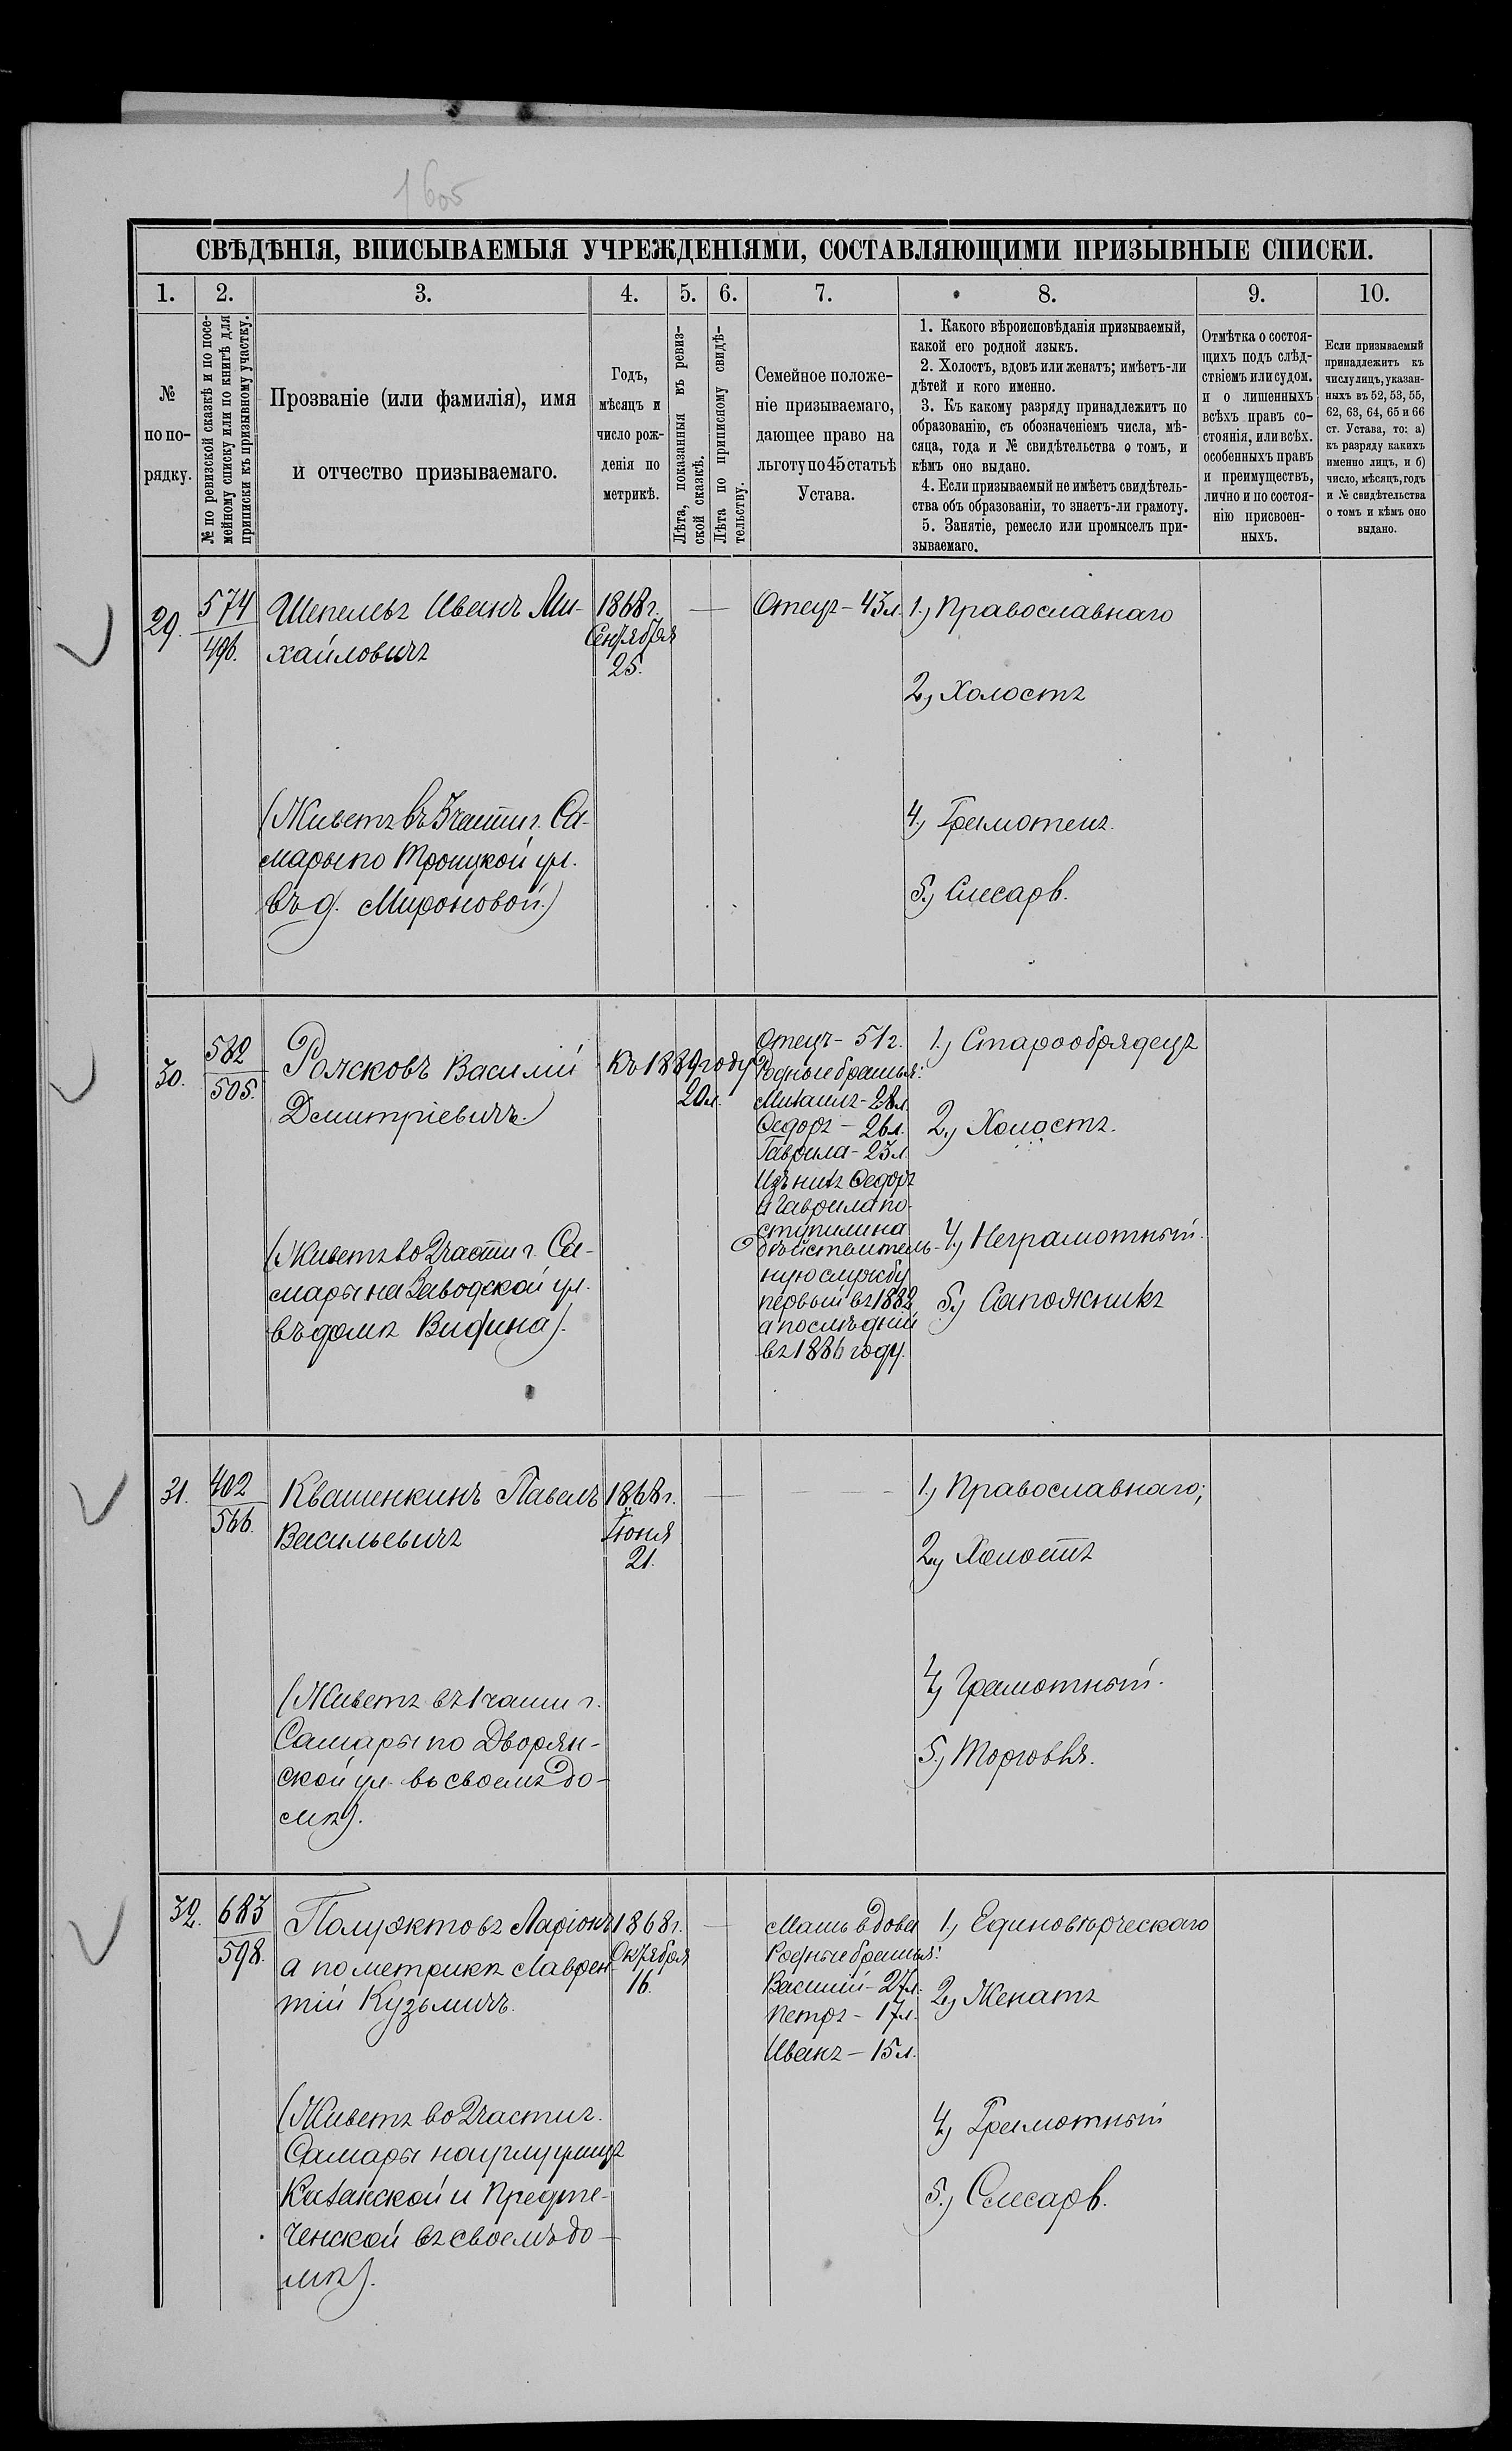 1605
СВѢДѢНІЯ, ВПИСЫВАЕМЫЯ УЧРЕЖДЕНІЯМИ, СОСТАВЛЯЮЩИМИ ПРИЗЫВНЫЕ СПИСКИ.
1. 2. 3. 4. 5. 6. 7. 8. 9. 10.
№
по по-
рядку.
№ по ревизской сказкѣ и по посе-
мейному списку или по книгѣ для
приписки къ призывному участку.
Прозваніе (или фамилія), имя
и отчество призываемаго.
Годъ,
мѣсяцъ и
число рож-
денія по
метрикѣ.
Лѣта, показанныя въ ревиз-
ской сказкѣ.
Лѣта по приписному свидѣ-
тельству.
Семейное положе-
ніе призываемаго,
дающее право на
льготу по 45 статьѣ
Устава.
1. Какого вѣроисповѣданія призываемый,
какой его родной языкъ.
2. Холостъ, вдовъ или женатъ; имѣетъ-ли
дѣтей и кого именно.
3. Къ какому разряду принадлежитъ по
образованію, съ обозначеніемъ числа, мѣ-
сяца, года и № свидѣтельства о томъ, и
кѣмъ оно выдано.
4. Если призываемый не имѣетъ свидѣтель-
ства объ образованіи, то знаетъ-ли грамоту.
5. Занятіе, ремесло или промыселъ при-
зываемаго.
Отмѣтка о состоя-
щихъ подъ слѣд-
ствіемъ или судом.
и о лишенныхъ
всѣхъ правъ со-
стоянія, или всѣх.
особенныхъ правъ
и преимуществъ,
лично и по состоя-
нію присвоен-
ныхъ.
Если призываемый
принадлежитъ къ
числу лицъ, указан-
ныхъ въ 52, 53, 55,
62, 63, 64, 65 и 66
ст. Устава, то: а)
къ разряду какихъ
именно лицъ, и б)
число, мѣсяцъ, годъ
и № свидѣтельства
о томъ и кѣмъ оно
выдано.
29.
574
496.
Шепелевъ Иванъ Ми-
хайловичъ
(Живетъ въ 3 части г. Са-
мары по Троицкой ул.
въ д. Мироновой.)
1868 г.
Сентября
25.
Отецъ - 43 л.
1.) Православнаго
2.) Холостъ
4.) Грамотенъ.
5.) Слесарь.
30.
582
505.
Рожсковъ Василій
Дмитріевичъ.
(Живетъ во 2 части г. Са-
мары на Заводской ул.
въ домѣ Видина).
Къ 1889 году
20 л.
Отецъ - 51 г.
Родные братья:
Михаилъ - 28 л.
Федоръ - 26 л.
Гаврила - 23 л.
Изъ нихъ Федоръ
и Гаврила по-
ступили на
дѣйствитель-
ную службу
первый въ 1882
а послѣдній
въ 1886 году.
1.) Старообрядецъ
2.) Холостъ.
4.) Неграмотный.
5.) Сапожникъ
31.
402
566.
Квашенкинъ Павелъ
Васильевичъ
(Живетъ въ 1 части г.
Самары по Дворян-
ской ул. въ своемъ до-
мѣ).
1868 г.
Іюня
21.
1.) Православнаго;
2.) Холостъ
4.) Грамотный.
5.) Торговля.
32.
683
598.
Полуэктовъ Ларіонъ
а по метрикѣ Лаврен-
тій Кузьмичъ.
(Живетъ во 2 части г.
Самары на углу улицъ
Казанской и Предте-
ченской въ своемъ до-
мѣ).
1868 г.
Октября
16.
Мать вдова
Родные братья:
Василій - 27 л.
Петръ - 17 л.
Иванъ - 15 л.
1.) Единовѣрческаго
2.) Женатъ
4.) Грамотный
5.) Слесарь.